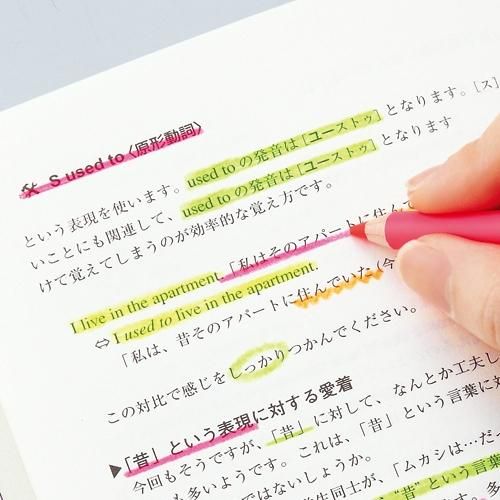 S used to〈原形動詞〉
という表現を使います。used to の発音は［ユーストゥ］となります。［ス］
いことにも関連して、used to の発音は［ユーストゥ］となります
けて覚えてしまうのが効率的な覚え方です。
I live in the apartment.「私はそのアパートに住んで
⇔ I used to live in the apartment.
「私は、昔そのアパートに住んでいた（今
この対比で感じをしっかりつかんでください。
▶「昔」という表現に対する愛着
今回もそうですが、「昔」に対して、なんとか工夫し
も多いようです。これは、「昔」という言葉に対
ではないでしょうか。
生同士が、「ムカシは…だっ
"昔" という言葉